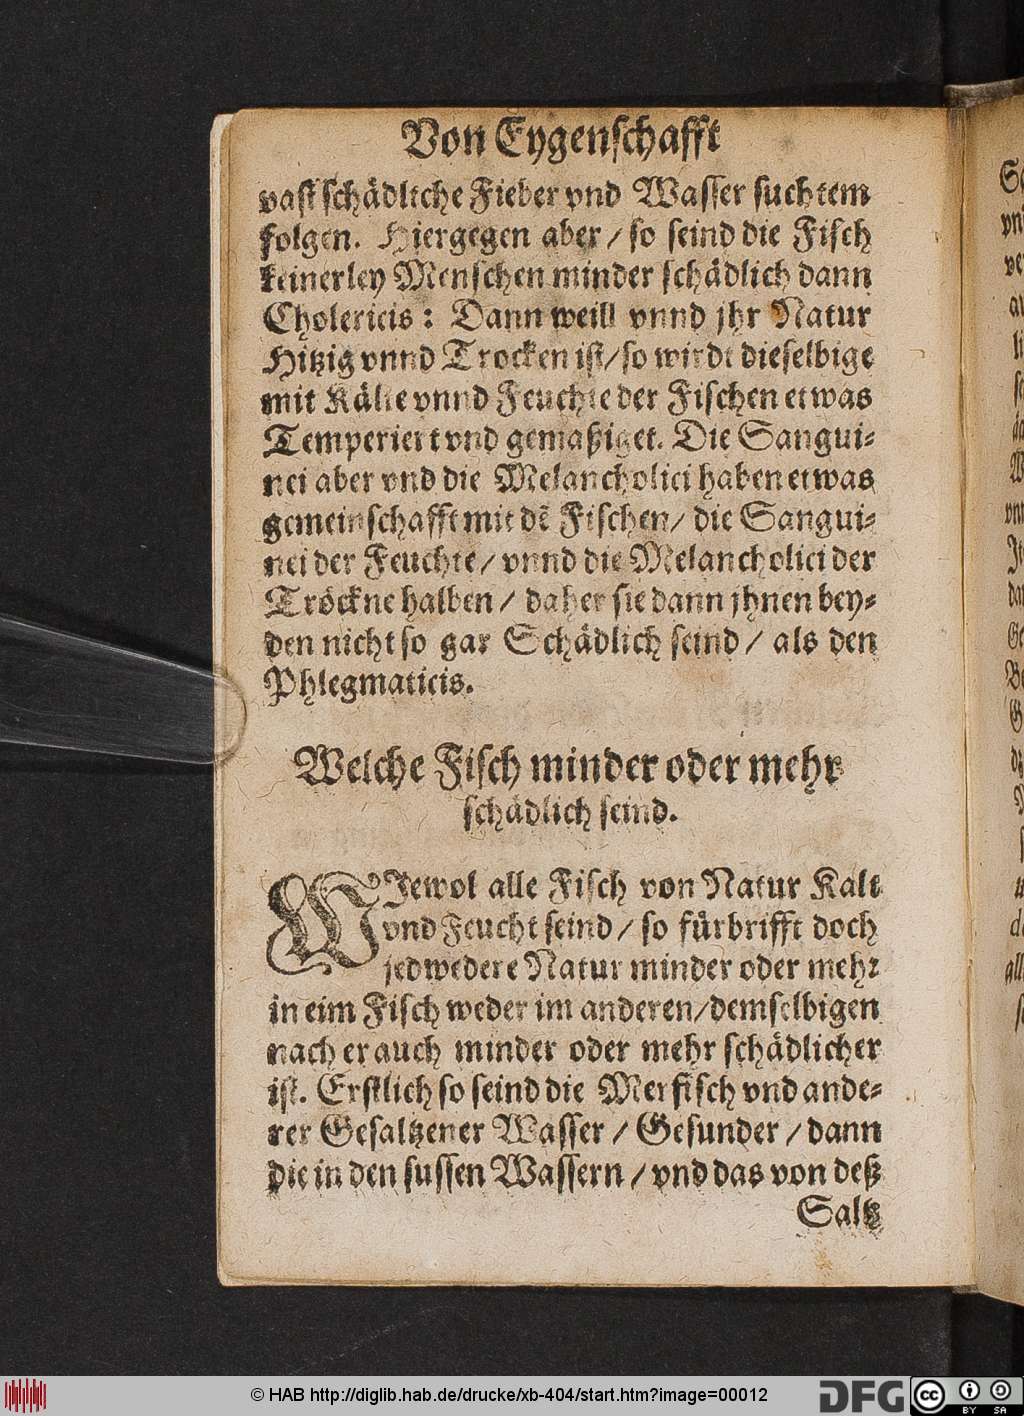 Von Eygenschafft
vast schädliche Fieber vnd Wasser suchtem
folgen. Hiergegen aber / so seind die Fisch
keinerley Menschen minder schädlich dann
Cholericis : Dann weill vnnd jhr Natur
Hitzig vnnd Trocken ist / so wirdt dieselbige
mit Kälte vnnd Feuchte der Fischen etwas
Temperiert vnd gemaßiget. Die Sangui-
nei aber vnd die Melancholici haben etwas
gemeinschafft mit dẽ Fischen / die Sangui-
nei der Feuchte / vnnd die Melancholici der
Tröckne halben / daher sie dann jhnen bey-
den nicht so gar Schädlich seind / als den
Phlegmaticis.
Welche Fisch minder oder mehr
schädlich seind.
WIewol alle Fisch von Natur Kalt
vnd Feucht seind / so fürbrifft doch
jedwedere Natur minder oder mehr
in eim Fisch weder im anderen / demselbigen
nach er auch minder oder mehr schädlicher
ist. Erstlich so seind die Merfisch vnd ande-
rer Gesaltzener Wasser / Gesunder / dann
die in den sussen Wassern / vnd das von deß
Saltz
© HAB http://diglib.hab.de/drucke/xb-404/start.htm?image=00012
DFG
cc
BY SA